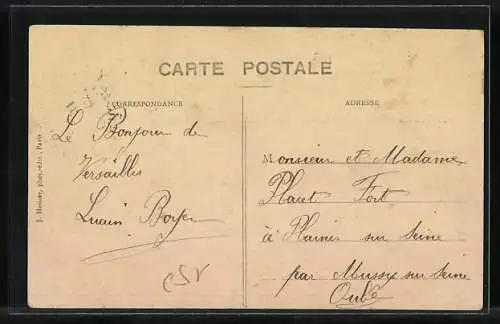 CARTE POSTALE
CORRESPONDANCE
ADRESSE
Le Bonjour de
Versailles
Monsieur et Madame
Fort
à Plaines sur Seine
par Mussy sur Seine
Aube
phot.-édit., Paris